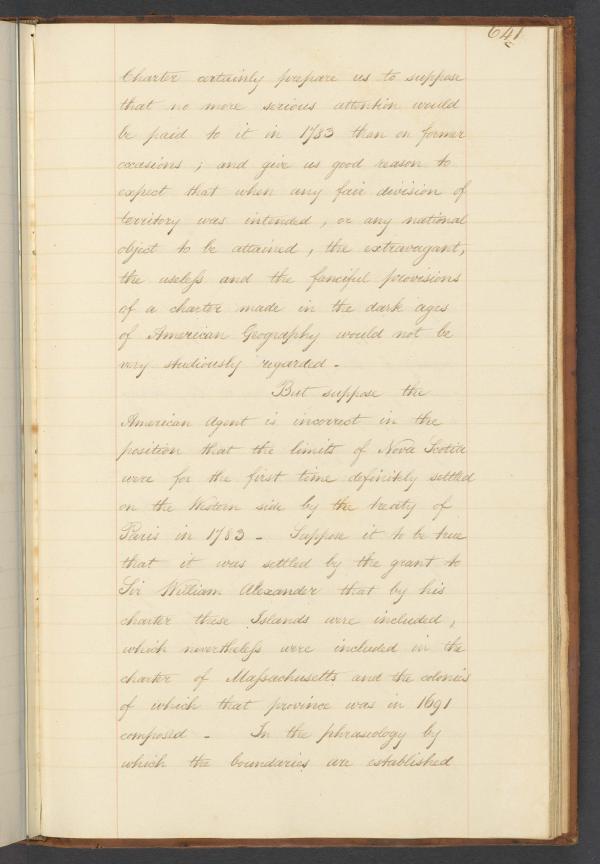 641
Charter certainly prepare us to suppose
that no more serious attention would
be paid to it in 1783 than on former
occasions ; and give us good reason to
expect that when any fair division of
territory was intended , or any national
object to be attained , the extravagant,
the useless and the fanciful provisions
of a charter made in the dark ages
of American Geography would not be
very studiously regarded -
But suppose the
American Agent is incorrect in the
position that the limits of Nova Scotia
were for the first time definitely settled
on the Western side by the treaty of
Paris in 1783 - Suppose it to be true
that it was settled by the grant to
Sir William Alexander that by his
charter these Islands were included ,
which nevertheless were included in the
charter of Massachusetts and the colonies
of which that province was in 1691
composed - In the phraseology by
which the boundaries are established